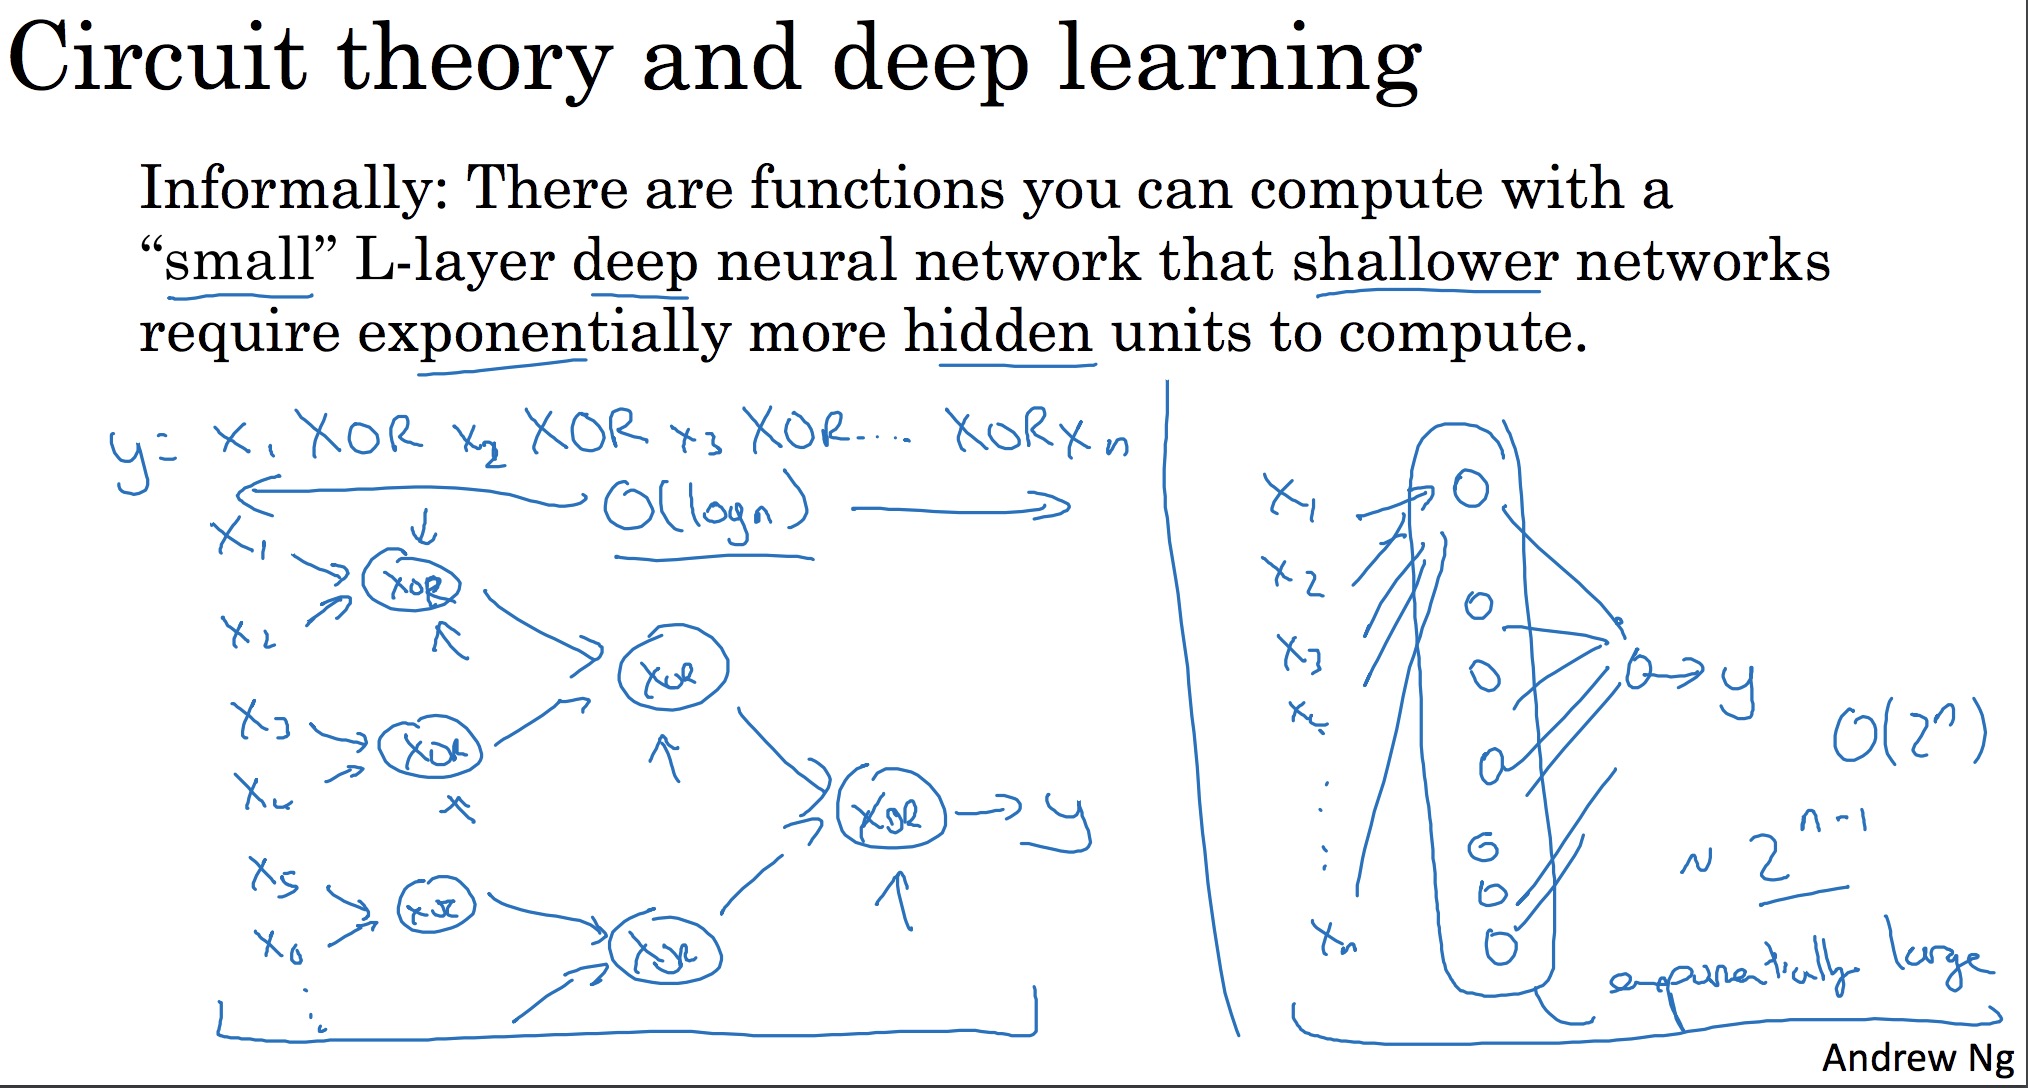 Circuit theory and deep learning
Informally: There are functions you can compute with a
“small” L-layer deep neural network that shallower networks
require exponentially more hidden units to compute.
y= x1 XOR x2 XOR x3 XOR.... XOR xn
O(logn)
x1
XOR
x2
XOR
x3
XOR
x4
XOR → y
x5
XOR
x6
XOR
x1
x2
x3
x4
xn
y
O(2^n)
~ 2^n-1
exponentially large
Andrew Ng